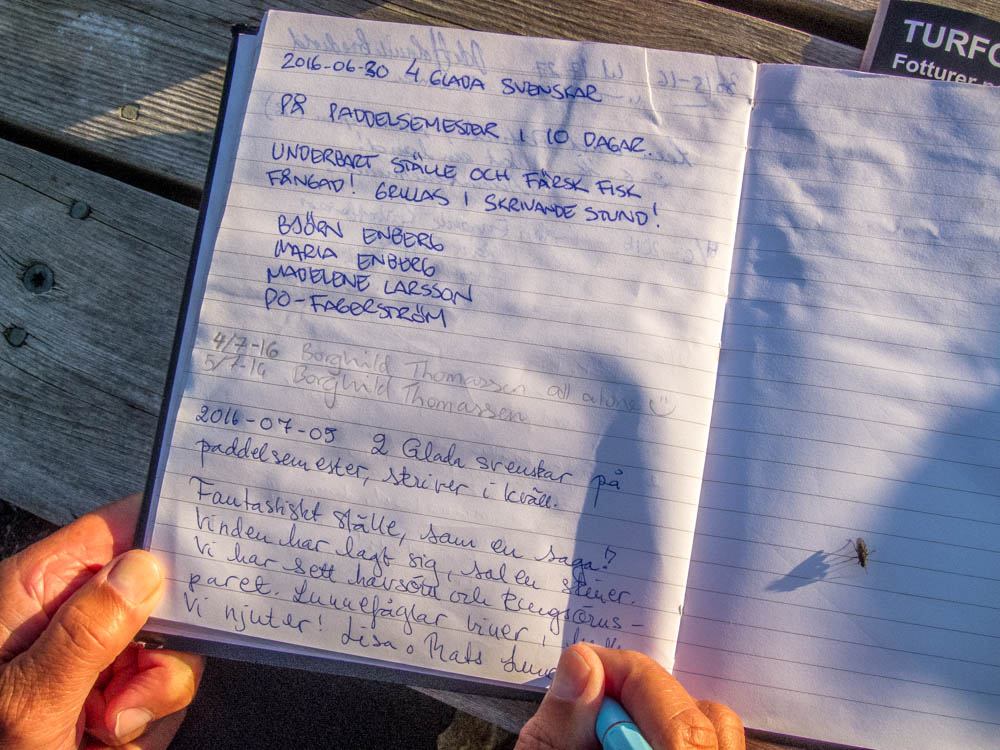 2016-06-30 4 GLADA SVENSKAR
PÅ PADDELSEMESTER I 10 DAGAR.
UNDERBART STÄLLE OCH FÄRSK FISK
FÅNGAD! GRILLAS I SKRIVANDE STUND!
BJÖRN ENBERG
MARIA ENBERG
MADELENE LARSSON
PO-FAGERSTRÖM
4/7-16 Borghild Thomassen all alone
5/7-16 Borghild Thomassen
2016-07-05 2 Glada svenskar på
paddelsemester, skriver i kväll.
Fantastiskt ställe, som en saga!
Vinden har lagt sig, solen skiner.
Vi har sett havsörn och kungsörns-
paret. Lunnefåglar viner i
Vi njuter! Lisa o Mats
TURFO
Fotturer